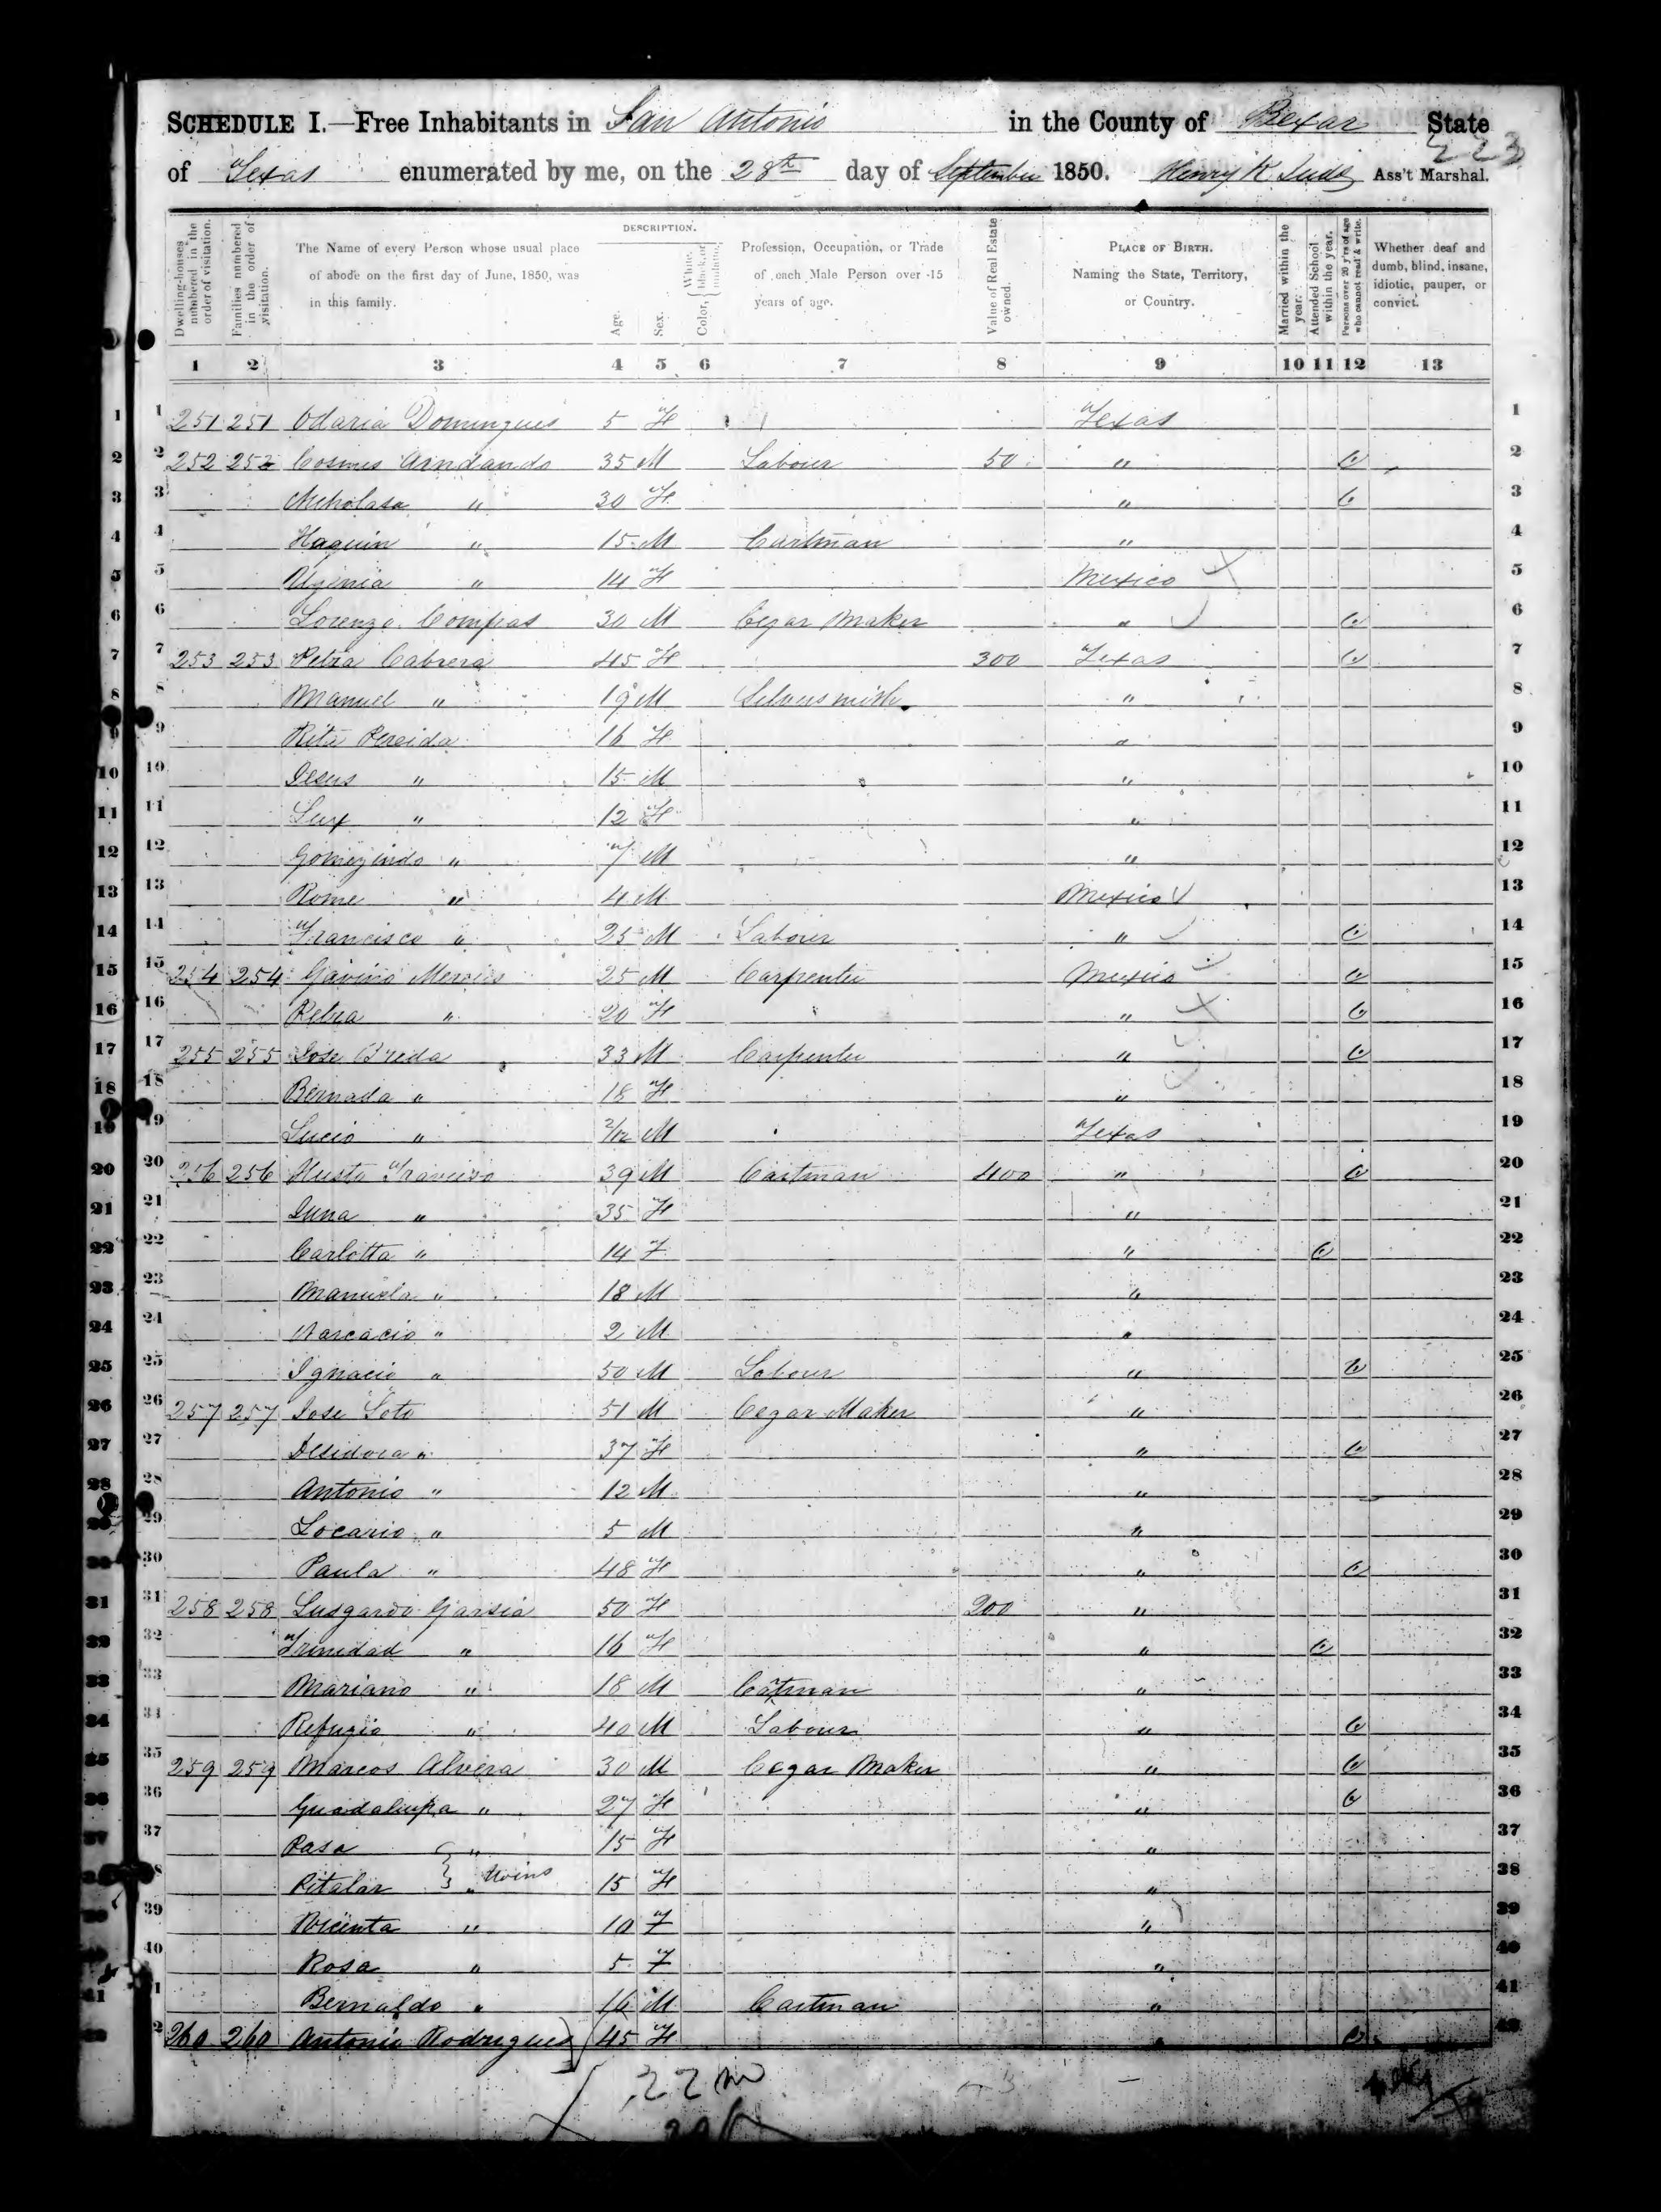 SCHEDULE I.—Free Inhabitants in San Antonio in the County of Bexar State
223
of Texas enumerated by me, on the 28th day of September 1850. Henry K. Ass't Marshal.
Dwelling-houses numbered in the order of visitation.
Families numbered in the order of visitation.
The Name of every Person whose usual place of abode on the first day of June, 1850, was in this family.
DESCRIPTION.
Age.
Sex.
Color, { White, black, or mulatto.
Profession, Occupation, or Trade of each Male Person over 15 years of age.
Value of Real Estate owned.
PLACE OF BIRTH. Naming the State, Territory, or Country.
Married within the year.
Attended School within the year.
Persons over 20 y'rs of age who cannot read & write.
Whether deaf and dumb, blind, insane, idiotic, pauper, or convict.
1 2 3 4 5 6 7 8 9 10 11 12 13
1 251 251 Odaria Domingues 5 F Texas 1
2 252 252 Cosmes Arndando 35 M Labour 50 " 2
3 Nicholasa " 30 F " 3
4 Haquin " 15 M Cartman " 4
5 Ugenia " 14 F Mexico 5
6 Lorenzo Compas 30 M Cegar Maker " 6
7 253 253 Petra Cabrera 45 F 300 Texas 7
8 Manuel " 19 M Silversmith " 8
9 Rita Pereida 16 F " 9
10 Jesus " 15 M " 10
11 Lux " 12 F " 11
12 Gomezindo " 7 M " 12
13 Rome " 4 M Mexico 13
14 Francisco " 25 M Labour " 14
15 254 254 Gavino 25 M Carpenter Mexico 15
16 Petra " 20 F " 16
17 255 255 Jose Breda 33 M Carpenter " 17
18 Bernada " 18 F " 18
19 Lucio " 2/12 M Texas 19
20 256 256 Husto Travieso 39 M Cartman 400 " 20
21 Juna " 35 F " 21
22 Carlotta " 14 F " 22
23 Manuela " 18 M " 23
24 Narcacio " 2 M " 24
25 Ignacio " 50 M Labour " 25
26 257 257 Jose Soto 51 M Cegar Maker " 26
27 Desidora " 37 F " 27
28 Antonio " 12 M " 28
29 Locario " 5 M " 29
30 Paula " 48 F " 30
31 258 258 Lusgardo Garsia 50 F 200 " 31
32 Trinidad " 16 F " 32
33 Mariano " 18 M Catman " 33
34 Refugio " 40 M Labour " 34
35 259 259 Marcos Alvera 30 M Cegar Maker " 35
36 Guadalupa " 27 F " 36
37 Pasa " 15 F " 37
38 Pitalar } " twins 15 F " 38
39 " 10 F " 39
40 Rosa " 5 F " 40
41 Bernaldo " 16 M Cartman " 41
42 260 260 Antonio Rodrigues 45 F " 42
22 m
20 f